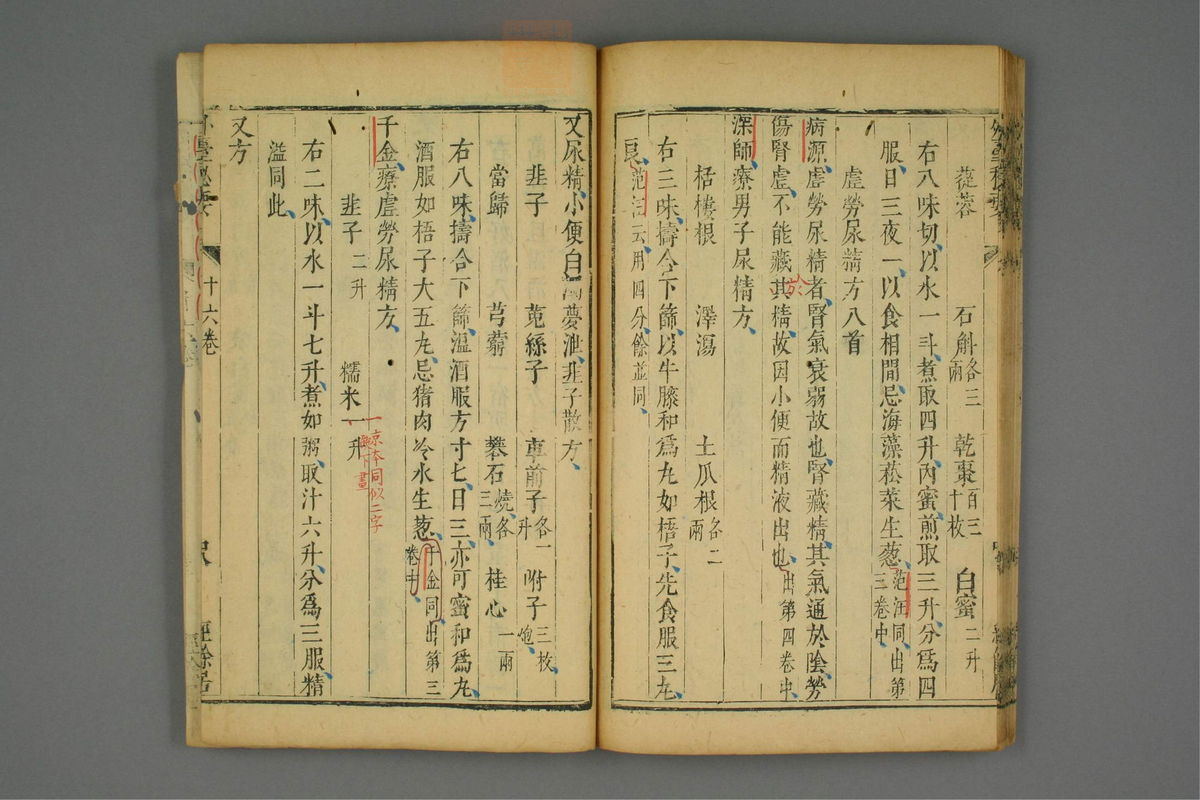 蓯蓉 石斛各三兩 乾棗百三十枚 白蜜二升
右八味切以水一斗煮取四升內蜜煎取三升分爲四
服日三夜一以食相間忌海藻菘菜生葱范汪同出第三卷中
虛勞尿精方八首
病源虛勞尿精者腎氣衰弱故也腎藏精其氣通於陰勞
傷腎虛不能藏其精故因小便而精液出也出第四卷中
於
深師療男子尿精方
栝樓根 澤瀉 土瓜根各二兩
右三味擣合下篩以牛膝和爲丸如梧子先食服三丸
良范汪云用四分餘並同
又尿精小便白濁夢泄韭子散方
韭子 菟絲子 車前子各一升 附子三枚炮
當歸 芎藭 礬石燒各三兩 桂心一兩
右八味擣合下篩溫酒服方寸匕日三亦可蜜和爲丸
酒服如梧子大五丸忌猪肉冷水生葱千金同出第三卷中
千金療虛勞尿精方
韭子二升 糯米一升
一京本同似二字無下畫
右二味以水一斗七升煮如粥取汁六升分爲三服精
溢同此
又方
外臺秘要 十六卷 經餘居